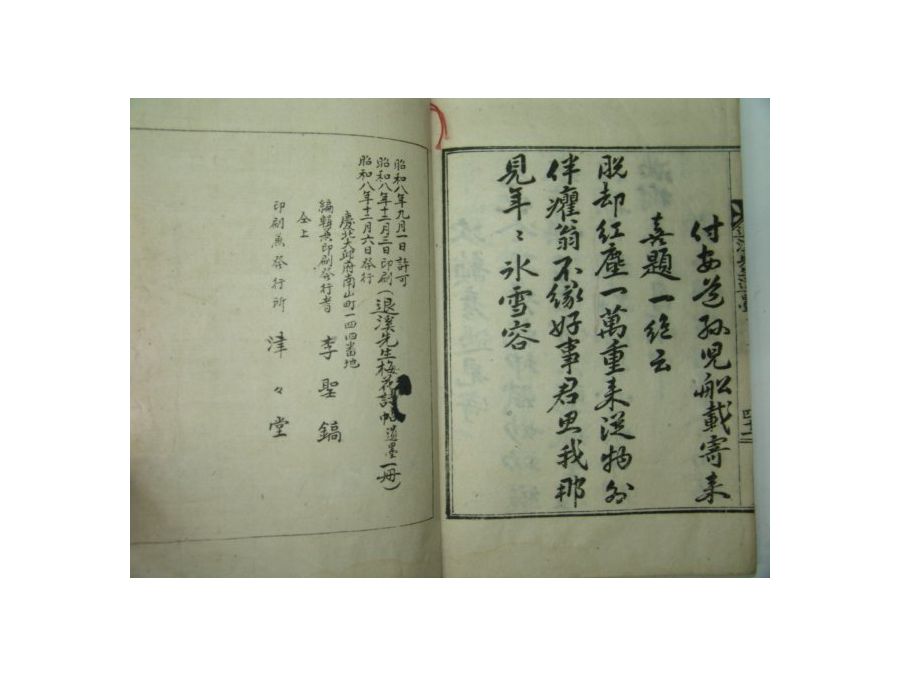 付安道孫兒船載寄来
喜題一絶云
脱却紅塵一萬重来従物外
伴癯翁不縁好事君思我那
見年〻氷雪容
四十二
昭和八年九月一日許可
昭和八年十二月三日印刷(退溪先生梅花詩帖遺墨一冊)
昭和八年十二月六日發行
慶北大邱府南山町一四四番地
編輯兼印刷發行者 李聖鎬
仝上
印刷兼發行所 津々堂